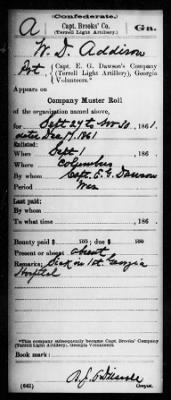 (Confederate.)
A
Capt. Brooks' Co.
(Terrell Light Artillery).
Ga.
W. D. Addison
Pvt, { Capt. E. G. Dawson's Company
(Terrell Light Artillery), Georgia
Volunteers.*
Appears on
Company Muster Roll
of the organization named above,
for Sept 27 to Nov 30, 1861.
dated Dec 17, 1861
Enlisted:
When Sept 1, 186
Where Columbus
By whom Capt. E. G. Dawson
Period War
Last paid:
By whom
To what time , 186
Bounty paid $ 100; due $ 100
Present or absent absent
Remarks: Sick in 1st Georgia
Hospital
*This company subsequently became Capt. Brooks' Company
(Terrell Light Artillery), Georgia Volunteers.
Book mark:
(642)
Copyist.